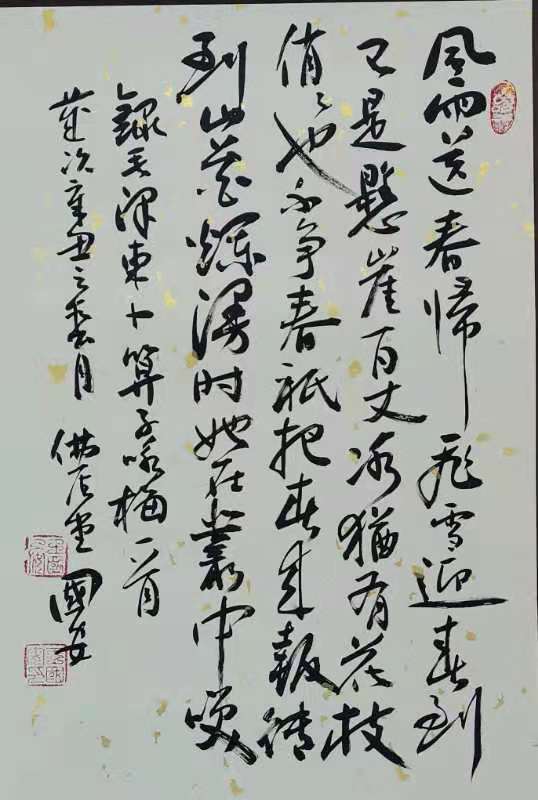 風雨送春歸飛雪迎春到
已是懸崖百丈冰猶有花枝
俏〻也不争春祇把春来報待
到山花爛漫时她在叢中笑
錄毛澤東卜算子咏梅一首
歲次辛丑之月 國安